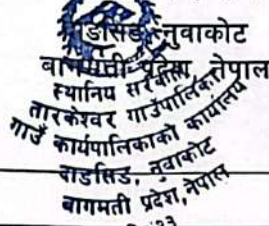 डाँसिङ, नुवाकोट
बागमती प्रदेश, नेपाल
स्थानिय सरकार
तारकेश्वर गाउँपालिका
गाउँ कार्यपालिकाको कार्यालय
डाडसिङ, नुवाकोट
बागमती प्रदेश, नेपाल